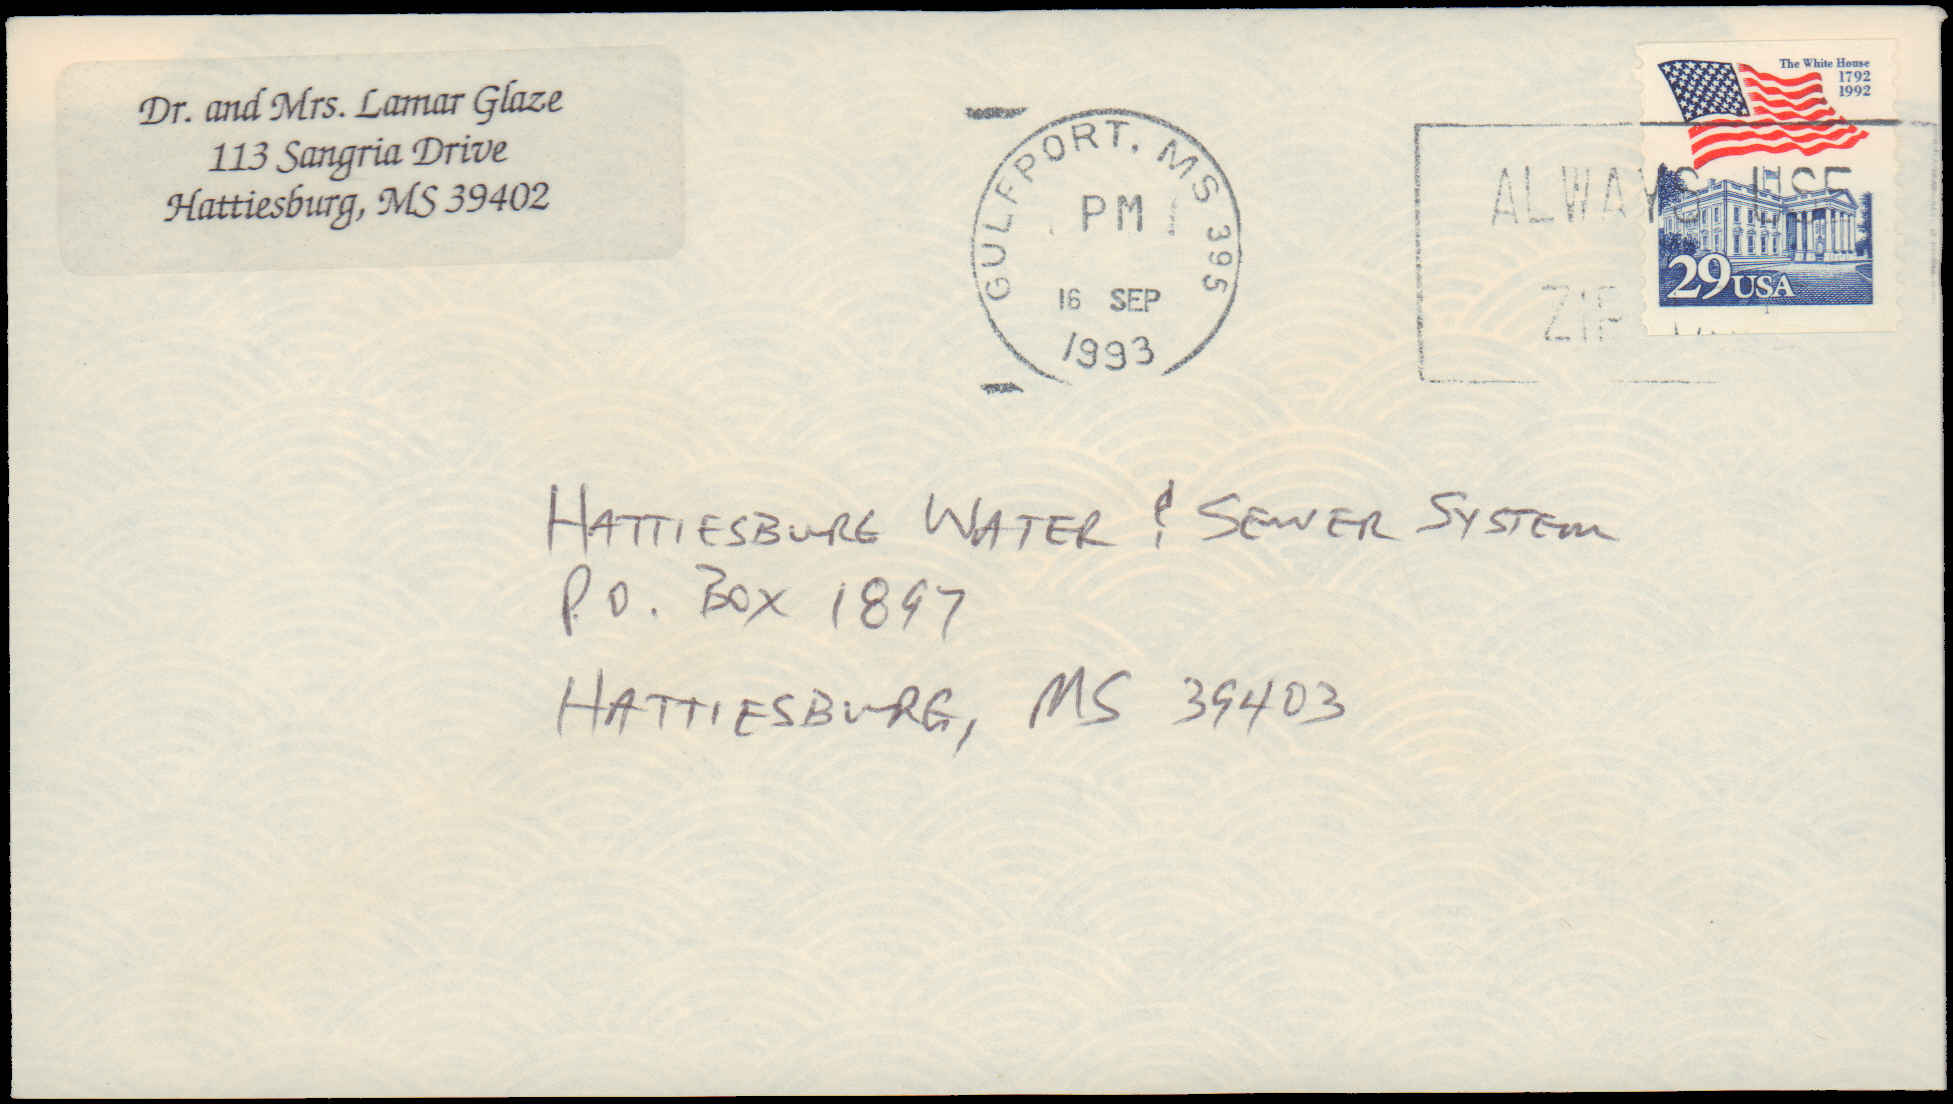 Dr. and Mrs. Lamar Glaze
113 Sangria Drive
Hattiesburg, MS 39402
GULFPORT, MS 395
PM
16 SEP
1993
ALWAYS USE
ZIP
The White House
1792
1992
29 USA
HATTIESBURG WATER & SEWER SYSTEM
P.O. BOX 1897
HATTIESBURG, MS 39403